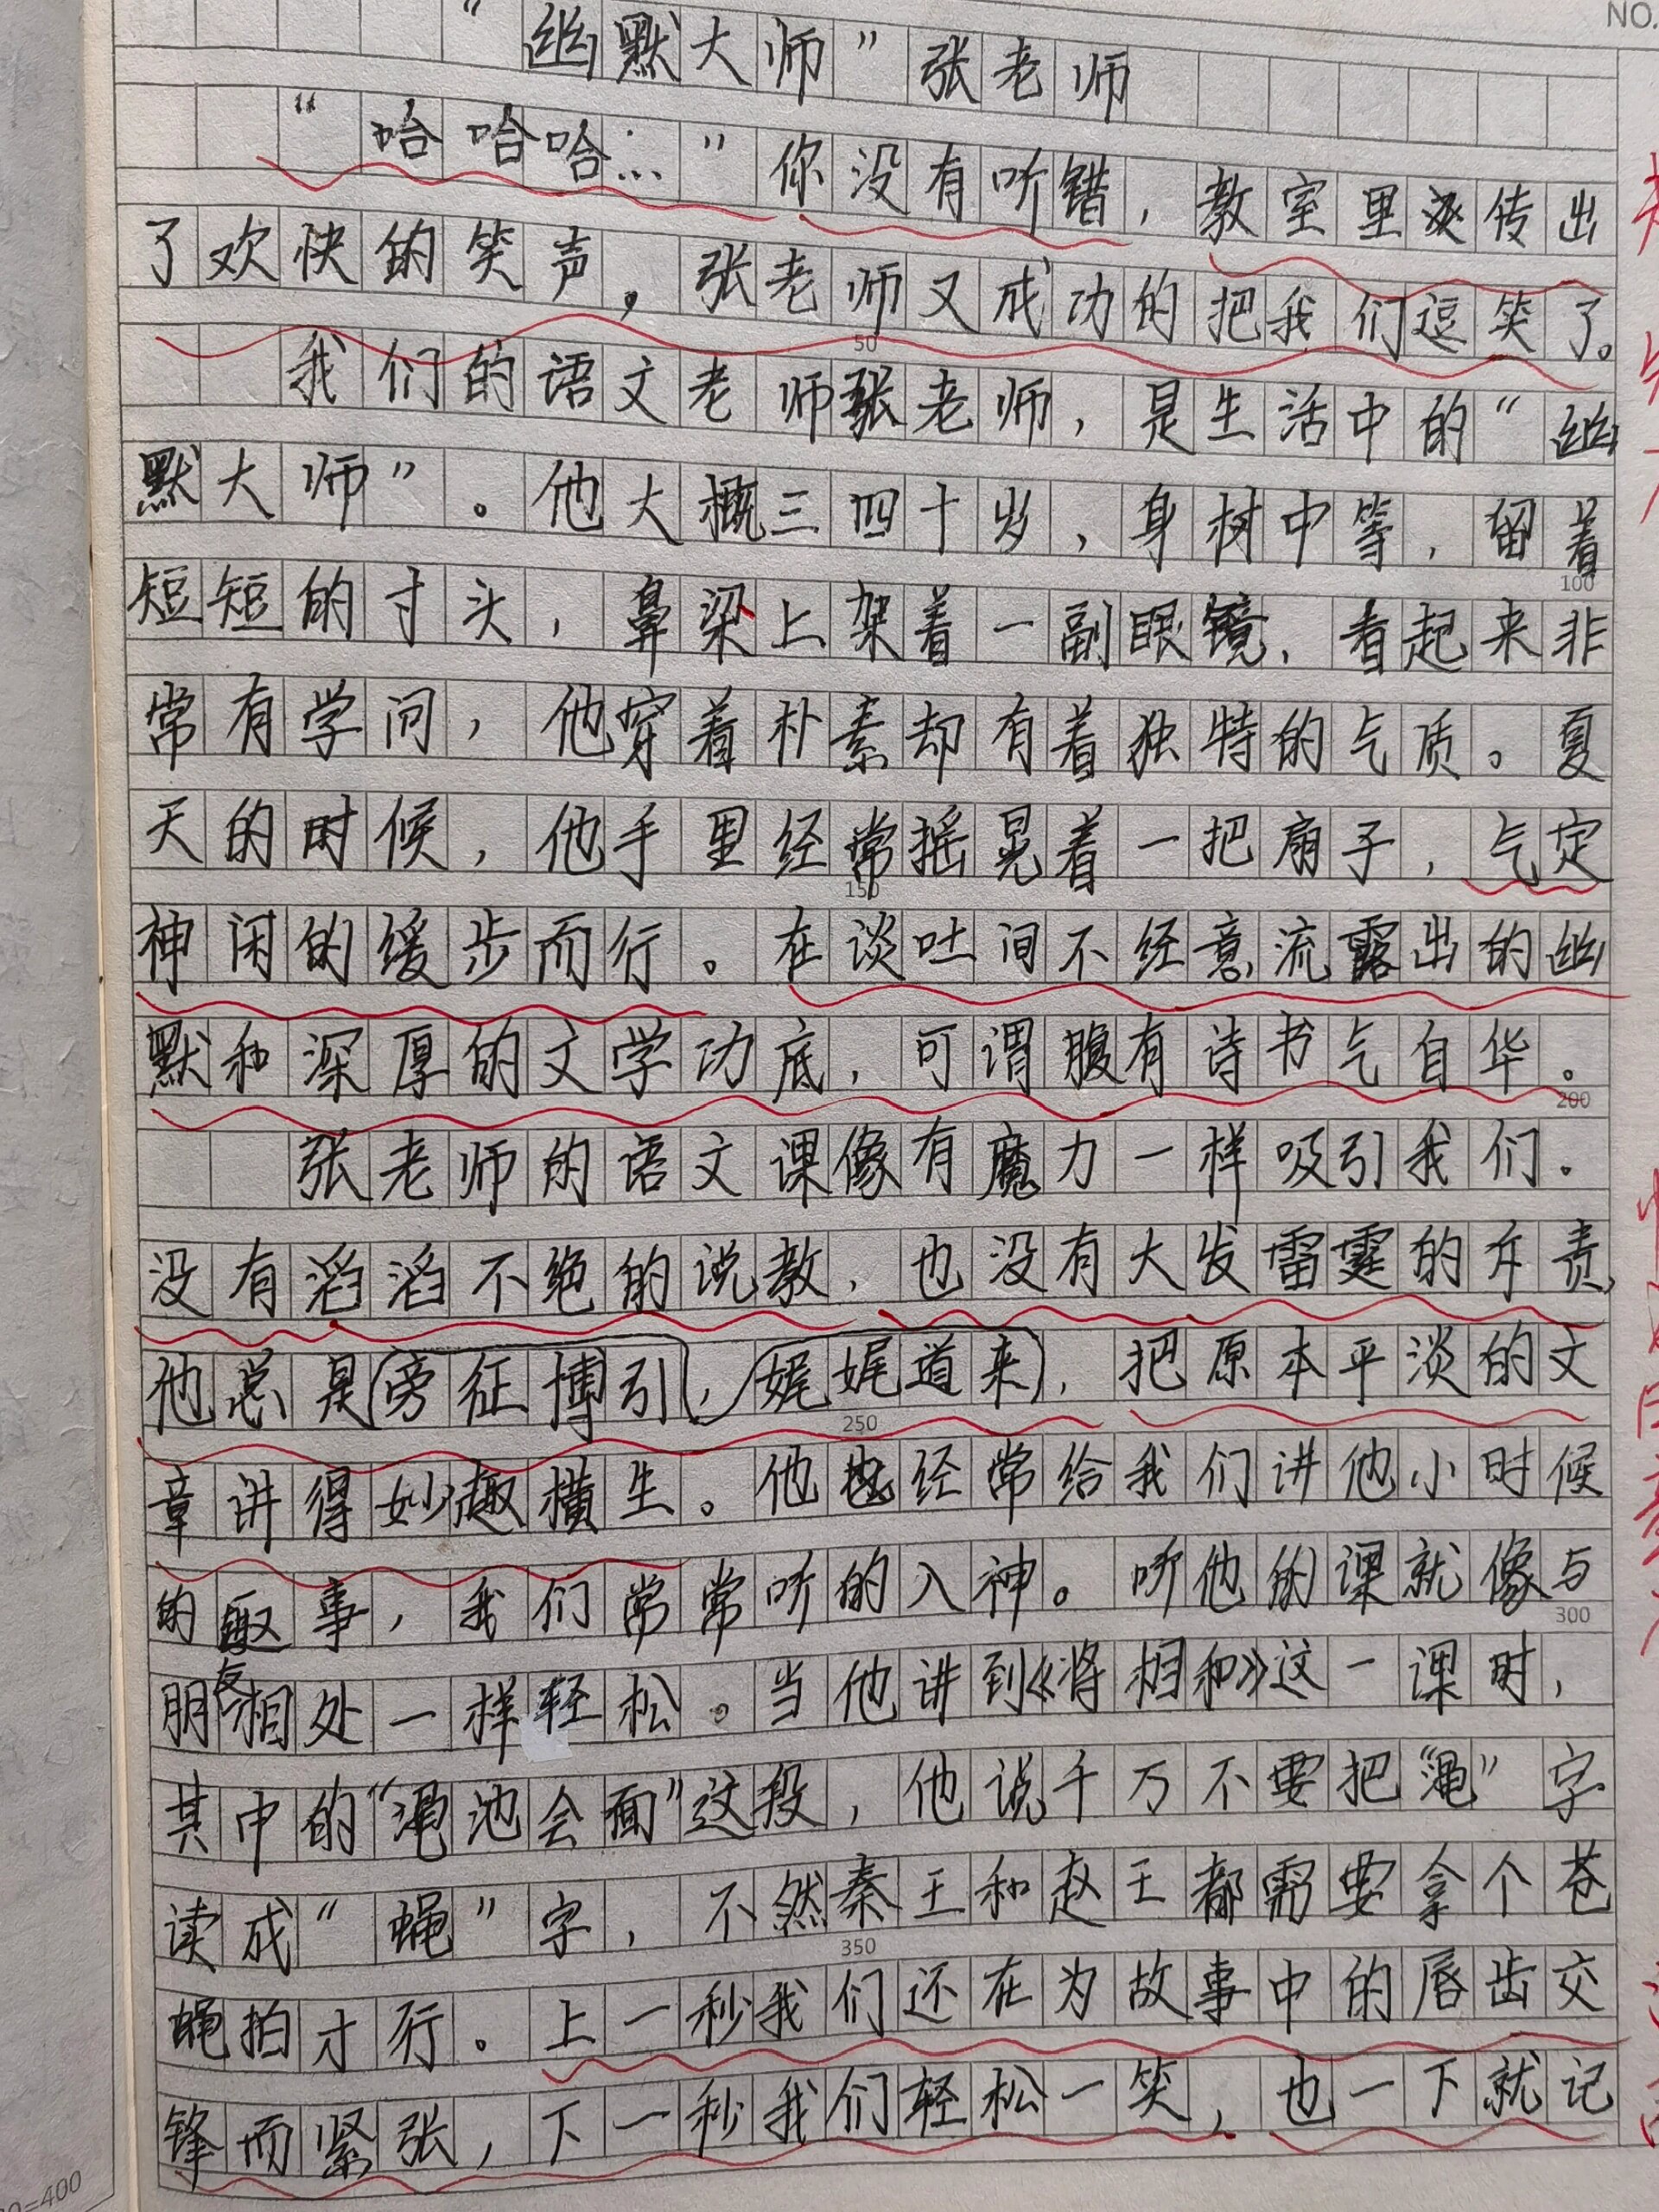 NO.
“幽默大师”张老师
“哈哈哈…”你没有听错，教室里又传出
了欢快的笑声，张老师又成功的把我们逗笑了。
50
我们的语文老师张老师，是生活中的“幽
默大师”。他大概三四十岁，身材中等，留着
100
短短的寸头，鼻梁上架着一副眼镜，看起来非
常有学问，他穿着朴素却有着独特的气质。夏
天的时候，他手里经常摇晃着一把扇子，气定
150
神闲的缓步而行。在谈吐间不经意流露出的幽
默和深厚的文学功底，可谓腹有诗书气自华。
200
张老师的语文课像有魔力一样吸引我们。
没有滔滔不绝的说教，也没有大发雷霆的斥责，
他总是旁征博引，娓娓道来，把原本平淡的文
250
章讲得妙趣横生。他也经常给我们讲他小时候
的趣事，我们常常听的入神。听他的课就像与
300
朋友相处一样轻松。当他讲到《将相和》这一课时，
其中的“渑池会面”这段，他说千万不要把“渑”字
读成“蝇”字，不然秦王和赵王都需要拿个苍
350
蝇拍才行。上一秒我们还在为故事中的唇齿交
锋而紧张，下一秒我们轻松一笑，也一下就记
=400